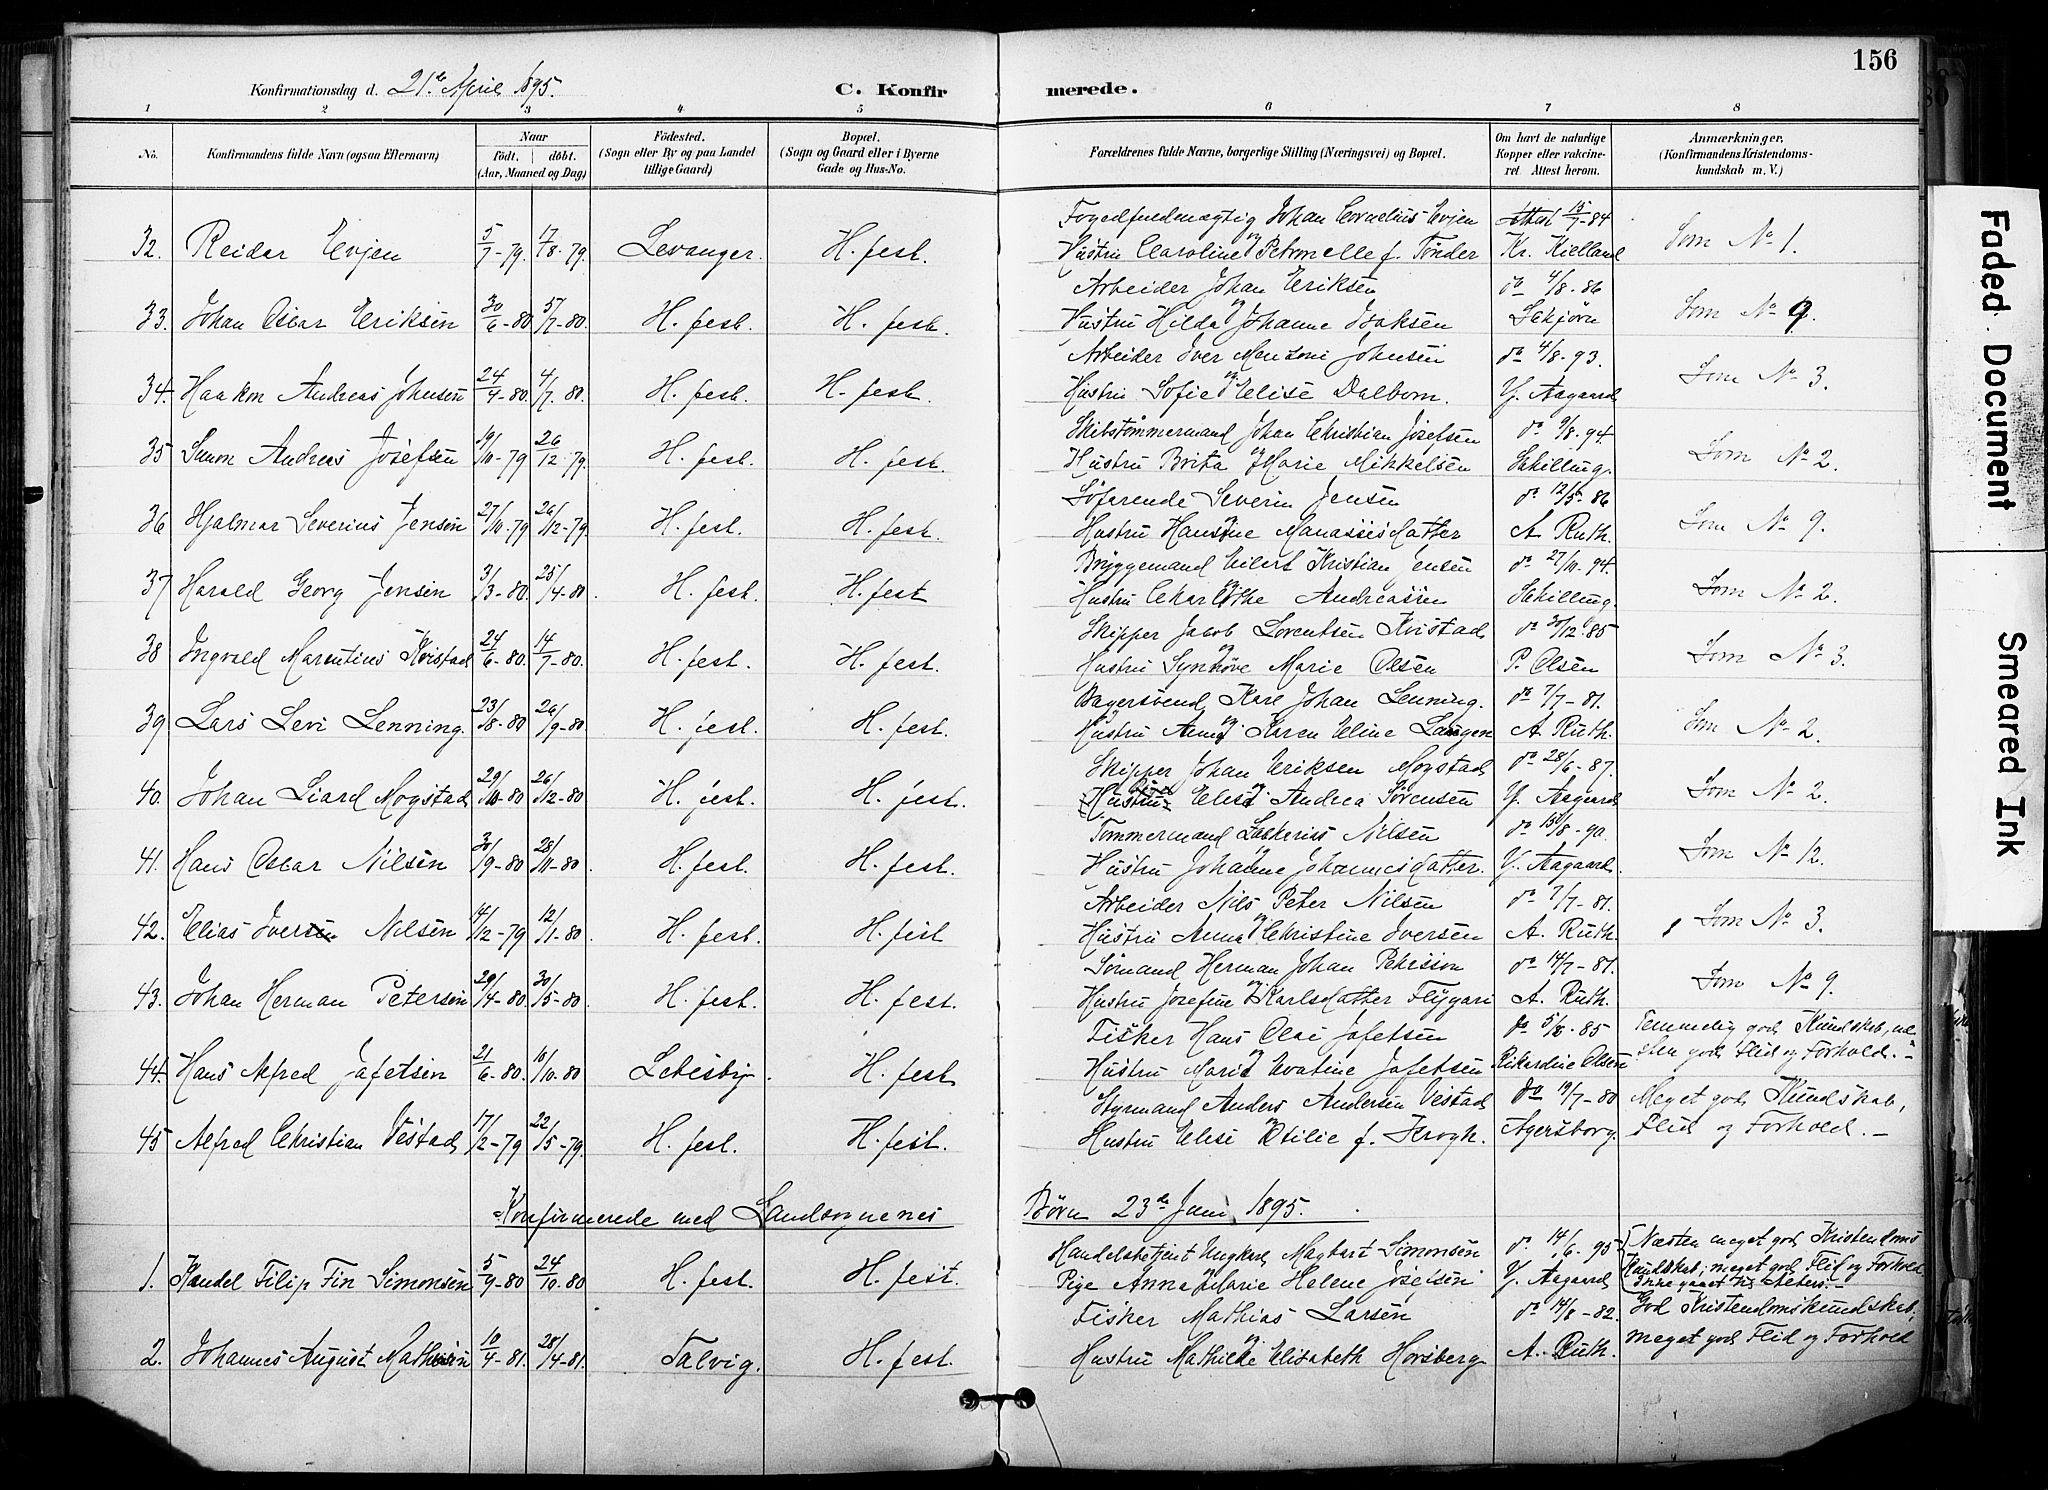 156
Konfirmationsdag d. 21de April 1895.
C. Konfirmerede.
1 2 3 4 5 6 7 8
No. Konfirmandens fulde Navn (ogsaa Efternavn) Naar født. døbt. (Aar, Maaned og Dag) Fødested. (Sogn eller By og paa Landet tillige Gaard) Bopæl. (Sogn og Gaard eller i Byerne Gade og Hus-No. Forældrenes fulde Navne, borgerlige Stilling (Næringsvei) og Bopæl. Om havt de naturlige Kopper eller vakcineret. Attest herom. Anmærkninger, (Konfirmandens Kristendomskundskab m. V.)
Fogedfuldmægtig Johan Cornelius Evjen Attest 15/7-84
32. Reidar Evjen 5/7-79. 17/8-79. Levanger. H.fest. og Hustru Caroline Petronelle f. Tønder Kr. Kielland Som No 1.
Arbeider Johan Eriksen do 4/8-86
33. Johan Oscar Eriksen 30/6-80 5/7-80. H.fest. H.fest. og Hustru Hilda Johanne Isaksen Som No 9.
Arbeider Iver Johnsen do 4/8-93.
34. Haakon Andreas Johnsen 24/4-80. 4/7 80. H.fest. H.fest. og Hustru Sofie Elise Dalbom. Y. Aagaard Som No 3.
Skibstømmermand Johan Christian Josefsen do 9/8-94
35 Simon Andreas Josefsen 19/10-79 26/12-79. H.fest. H.fest. og Hustru Brita Marie Mikkelsen Schilling. Som No 2.
Søfarende Severin Jensen do 12/5-86
36 Hjalmar Severius Jensen 27/10-79 26/12-79. H.fest. H.fest. og Hustru Hansine Manassesdatter A Ruth. Som No 9.
Bryggemand Eilert Kristian Jensen do 27/10-94.
37 Harald Georg Jensen 3/3-80. 25/4-80. H.fest. H.fest og Hustru Charlothe Andreassen Schilling. Som No 2.
Skipper Jacob Lorentsen Kvistad do 30/12-85
38 Ingvald Marentius Kvistad 24/6-80. 14/7-80. H.fest. H.fest. og Hustru Synnøve Marie Olsen P. Olsen Som No 3.
Bagersvend Karl Johan Lenning. do 7/7-81.
39 Lars Levi Lenning. 23/8-80 26/9-80 H.fest. H.fest. og Hustru Anne Karen Eline Langen A. Ruth. Som No 2.
Skipper Johan Eriksen Mogstad do 28/6-87.
40. Johan Liard Mogstad 29/10-80 26/12-80 H.fest. H.fest. og Hustru Elise Andrea Sørensen Y. Aagaard Som No 2.
Tømmermand Nilsen
41. Hans Oscar Nilsen 30/9-80 28/11-80 H.fest. H.fest. og Hustru Johanne Johannesdatter. Y. Aagaard. Som No 12.
Arbeider Nils Peter Nilsen do 7/7-81.
42. Elias Iversen Nilsen 14/12-79 12/1-80 H.fest. H.fest og Hustru Anne Christine Iversen A. Ruth. Som No 3.
Sømand Herman Johan do 14/7-81.
43. Johan Herman Petersen 29/4-80 30/5-80 H.fest. H.fest. og Hustru Josefine Karlsdatter A. Ruth. Som No 9.
Fisker Hans Olai Jafetsen do 5/8-85 Temmelig god Kundskab, næ
44. Hans Alfred Jafetsen 21/6-80. 10/10-80 Lebesby. H.fest og Hustru Marie Evatine Jafetsen Rikardine Olsen sten god Flid og Forhold.-
Styrmand Anders Andersen Vestad do 19/7-80 Meget god Kundskab,
45 Alfred Christian Vestad 17/2-79 22/5-79. H.fest. H.fest. og Hustru Elise Otilie f. Krogh. Agersborg. Flid og Forhold.-
Konfirmerede med Landsognenes Børn 23de Juni 1895.
Handelsbetjent Ungkarl Magbart Simonsen do 14/6-95 Næsten meget god Kristendoms
1. Handel Filip Fin Simonsen 5/9-80 24/10-80 H.fest. H.fest. og Pige Anna Marie Helene Josefsen Y. Aagaard Kundskab; meget god Flid og Forhold
Ikke gaaet til Alters.-
Fisker Mathias Larsen do 14/8-82. God Kristendomskundskab,
2. Johannes August Mathisen 10/4-81. 28/4-81. Talvig. H.fest. og Hustru Mathilde Elisabeth Horsberg A. Ruth. meget god Flid og Forhold
Faded Document
Smeared Ink